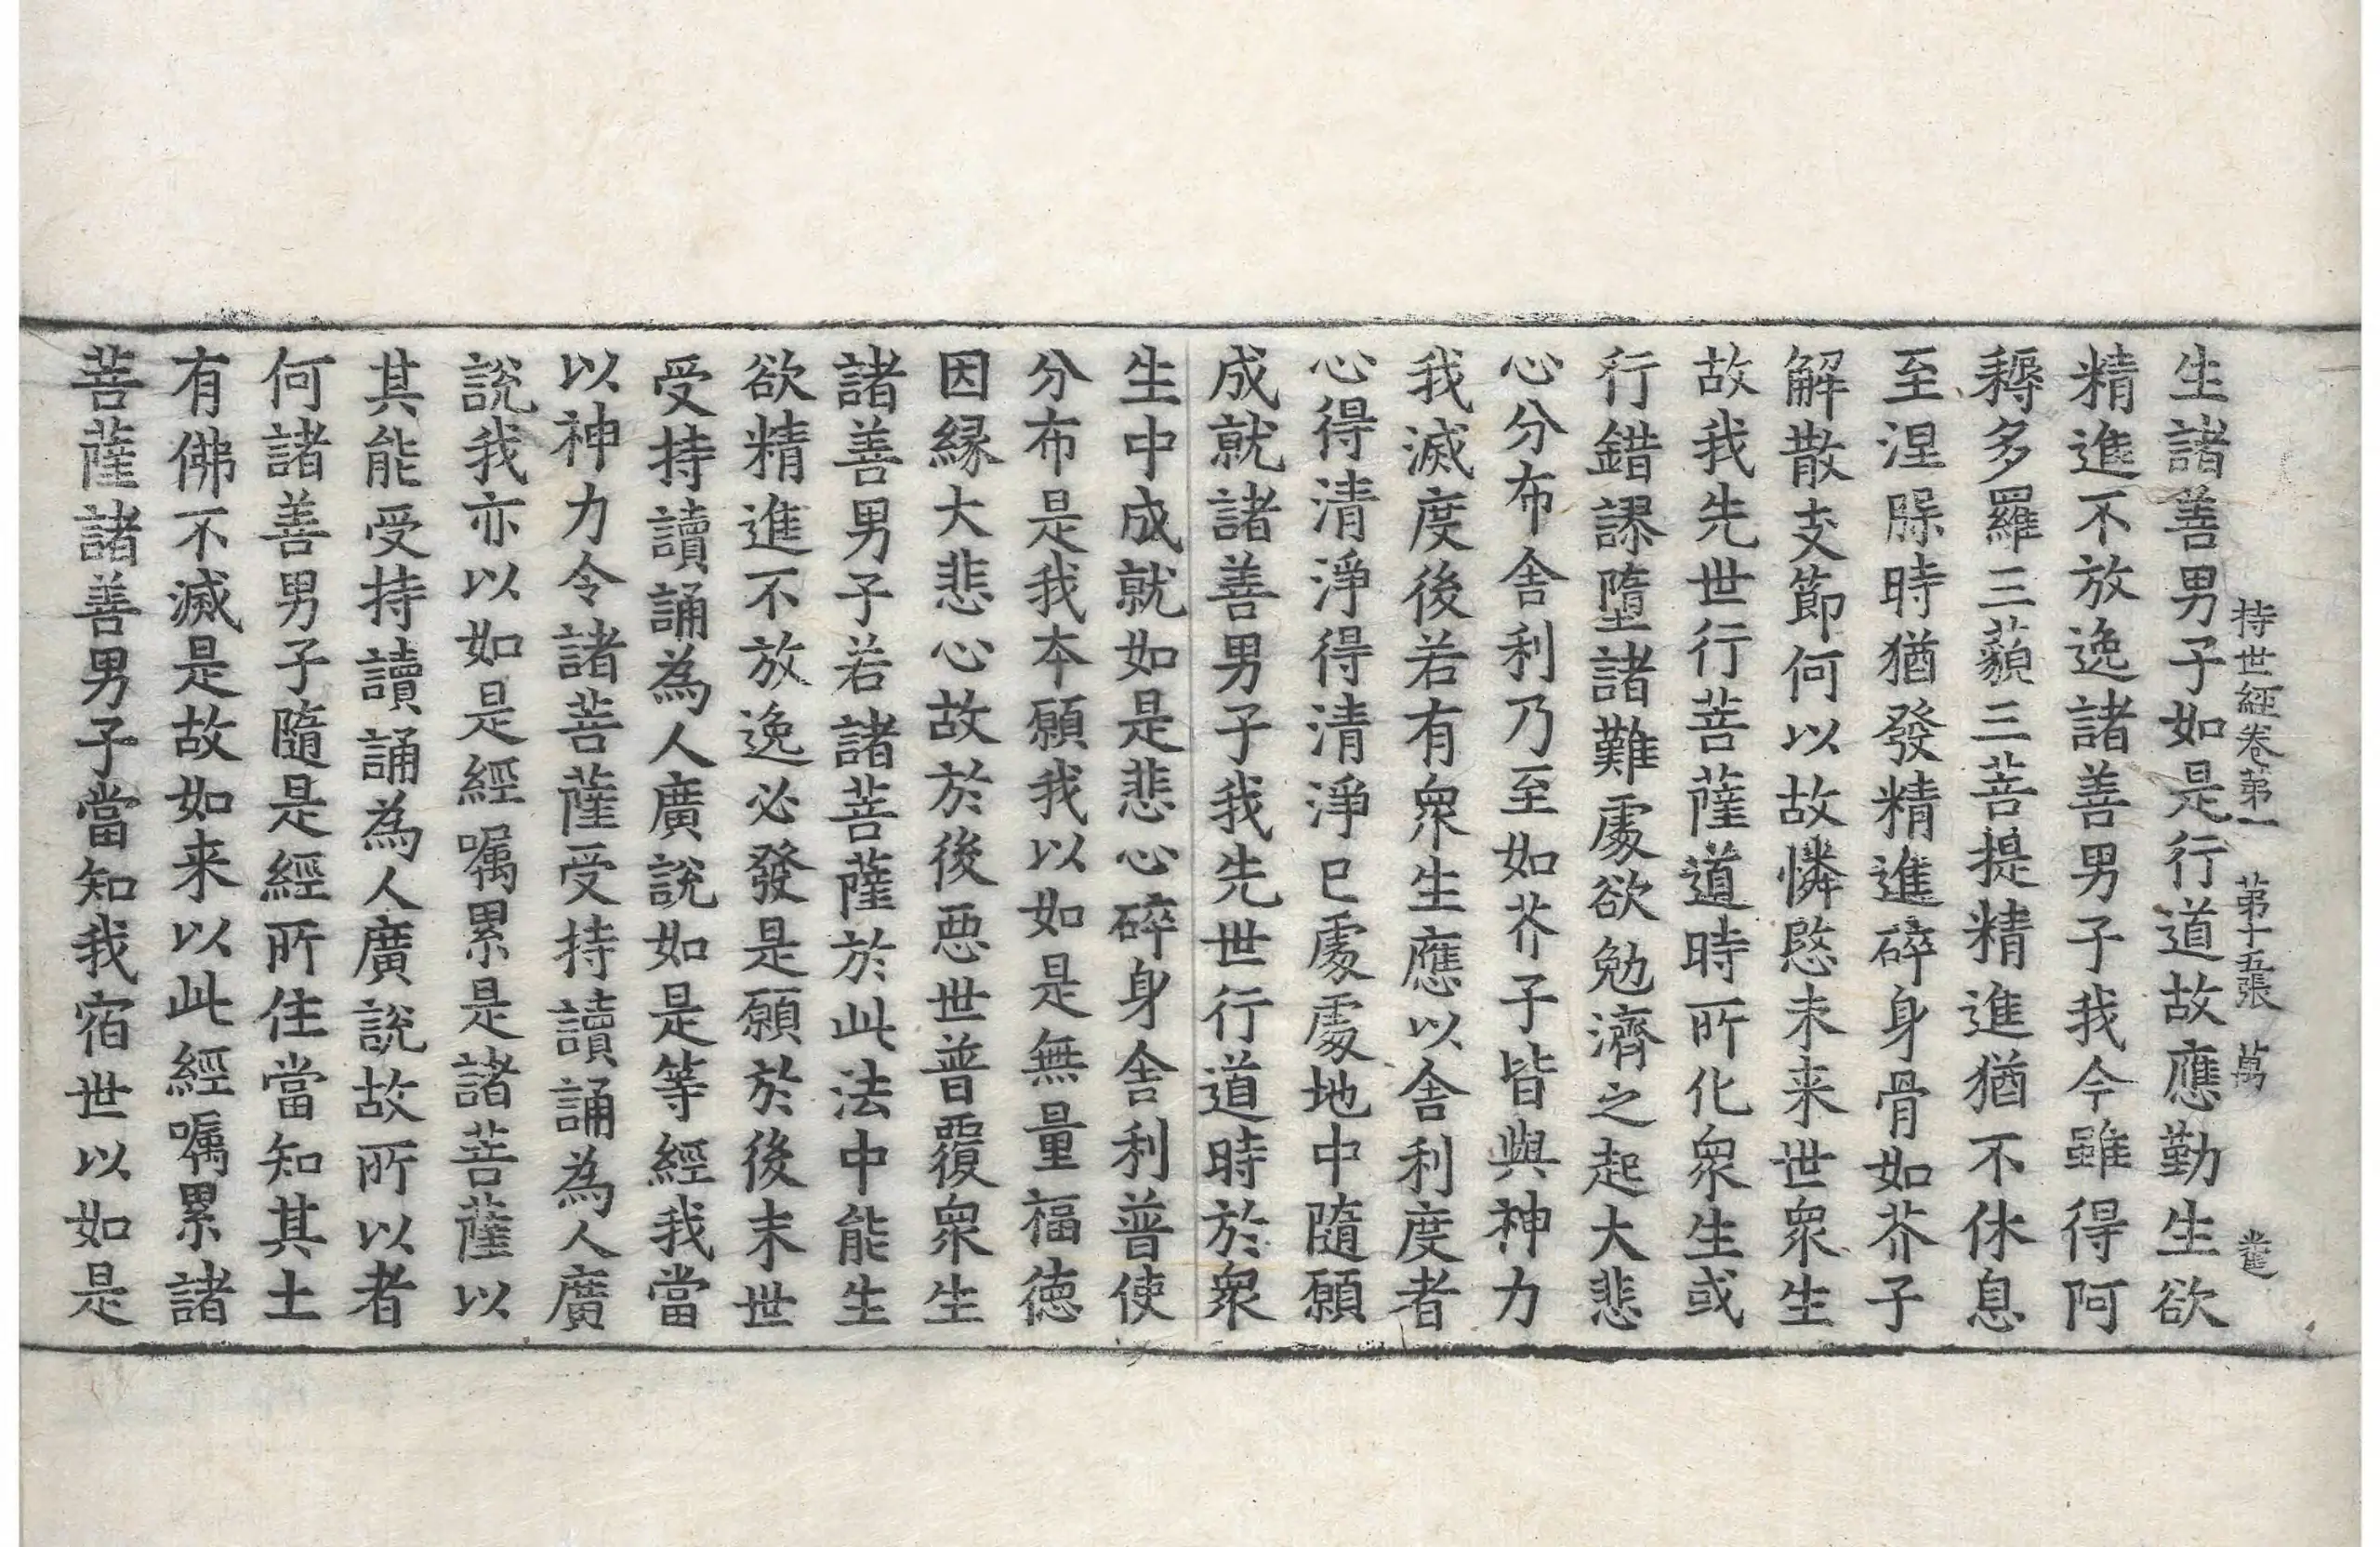 持世經卷第一 第十五張 萬
生諸善男子如是行道故應勤生欲
精進不放逸諸善男子我今雖得阿
耨多羅三藐三菩提精進猶不休息
至涅槃時猶發精進碎身骨如芥子
解散支節何以故憐愍未来世衆生
故我先世行菩薩道時所化衆生或
行錯謬墮諸難處欲勉濟之起大悲
心分布舍利乃至如芥子皆與神力
我滅度後若有衆生應以舍利度者
心得清淨得清淨已處處地中隨願
成就諸善男子我先世行道時於衆
生中成就如是悲心碎身舍利普使
分布是我本願我以如是無量福徳
因縁大悲心故於後惡世普覆衆生
諸善男子若諸菩薩於此法中能生
欲精進不放逸必發是願於後末世
受持讀誦為人廣說如是等經我當
以神力令諸菩薩受持讀誦為人廣
說我亦以如是經嘱累是諸菩薩以
其能受持讀誦為人廣說故所以者
何諸善男子隨是經所住當知其土
有佛不滅是故如来以此經嘱累諸
菩薩諸善男子當知我宿世以如是